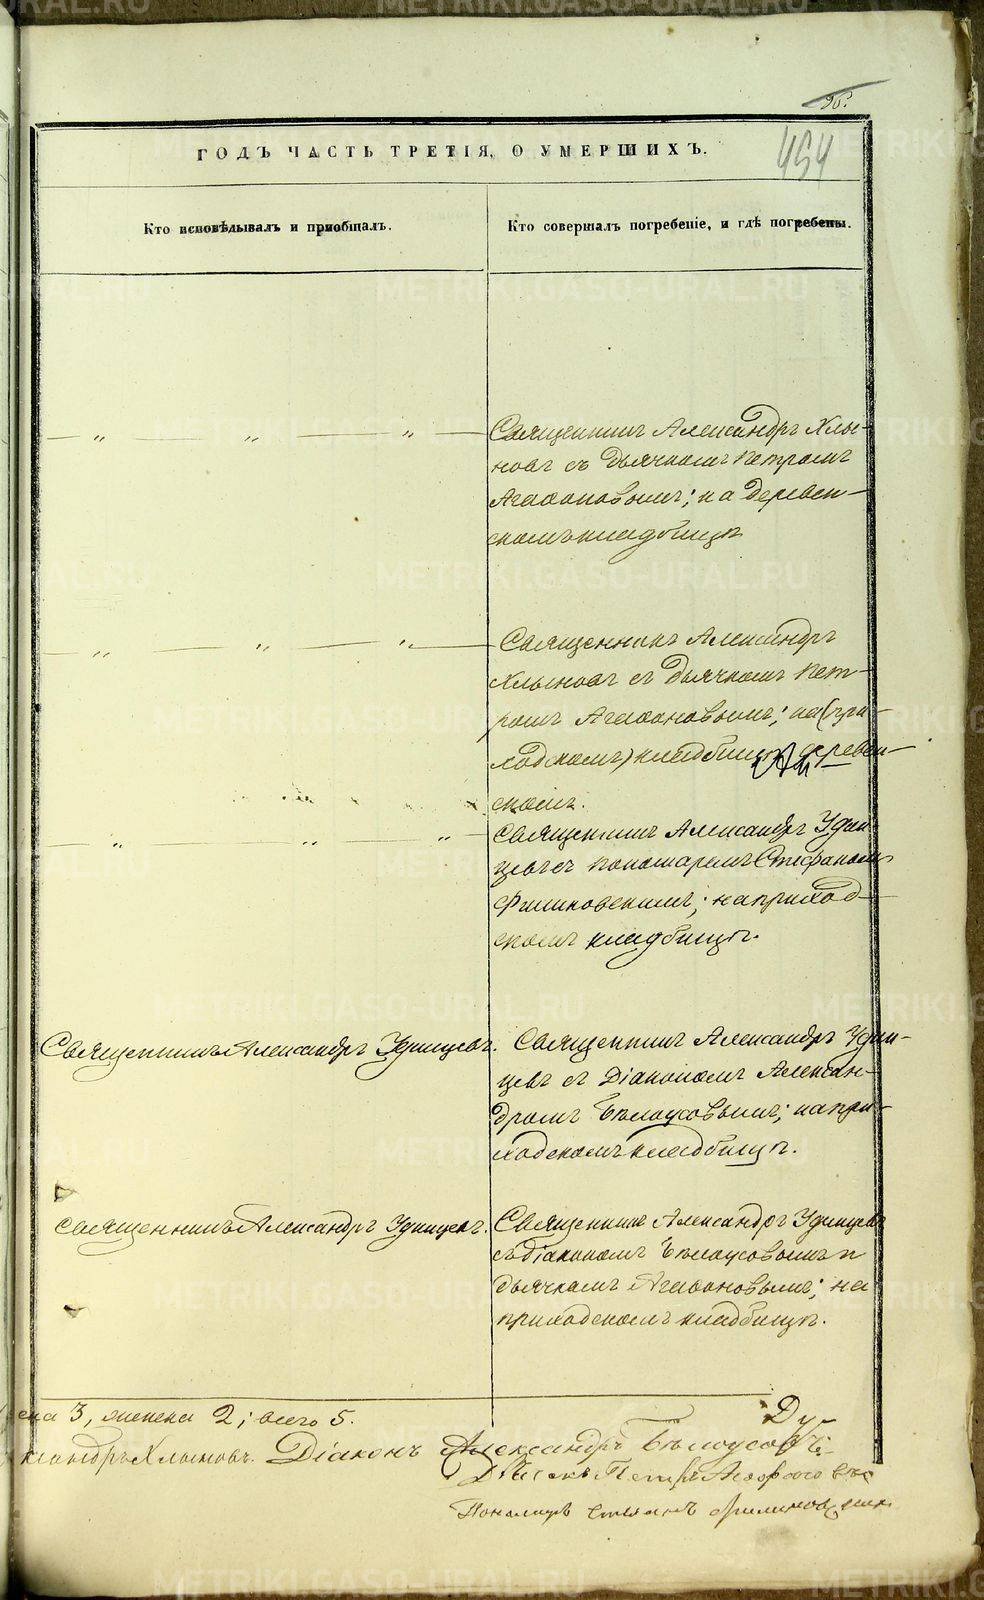 95.
454
ГОДЪ ЧАСТЬ ТРЕТІЯ, О УМЕРШИХЪ.
Кто исповѣдывалъ и пріобщалъ.
Кто совершалъ погребеніе, и гдѣ погребены.
— „ — „ — „ —
Священникъ Александръ Хлы-
новъ съ дьячкомъ Петромъ
Агафоновымъ; на деревен-
скомъ кладбищѣ
— „ — „ — „ —
Священникъ Александръ
Хлыновъ съ дьячкомъ Пет-
ромъ Агафоновымъ; на (при-
ходскомъ) кладбищѣ деревен-
скомъ.
„ „ „ —
Священникъ Александръ Удин-
цевъ съ пономаремъ Стефаномъ
Филиновскимъ; на приход-
скомъ кладбищѣ.
Священникъ Александръ Удинцевъ.
Священникъ Александръ Удин-
цевъ съ Діакономъ Алексан-
дромъ Бѣлоусовымъ; на при-
ходскомъ кладбищѣ.
Священникъ Александръ Удинцевъ.
Священникъ Александръ Удинцевъ
съ діакономъ Бѣлоусовымъ и
дьячкомъ Агафоновымъ; на
приходскомъ кладбищѣ.
3, женска 2; всего 5.
Ду-
Хлыновъ. Діаконъ Александръ Бѣлоусовъ.
Петръ Агафоновъ
Пономарь Стефанъ Филиновскій
METRIKI.GASO-URAL.RU